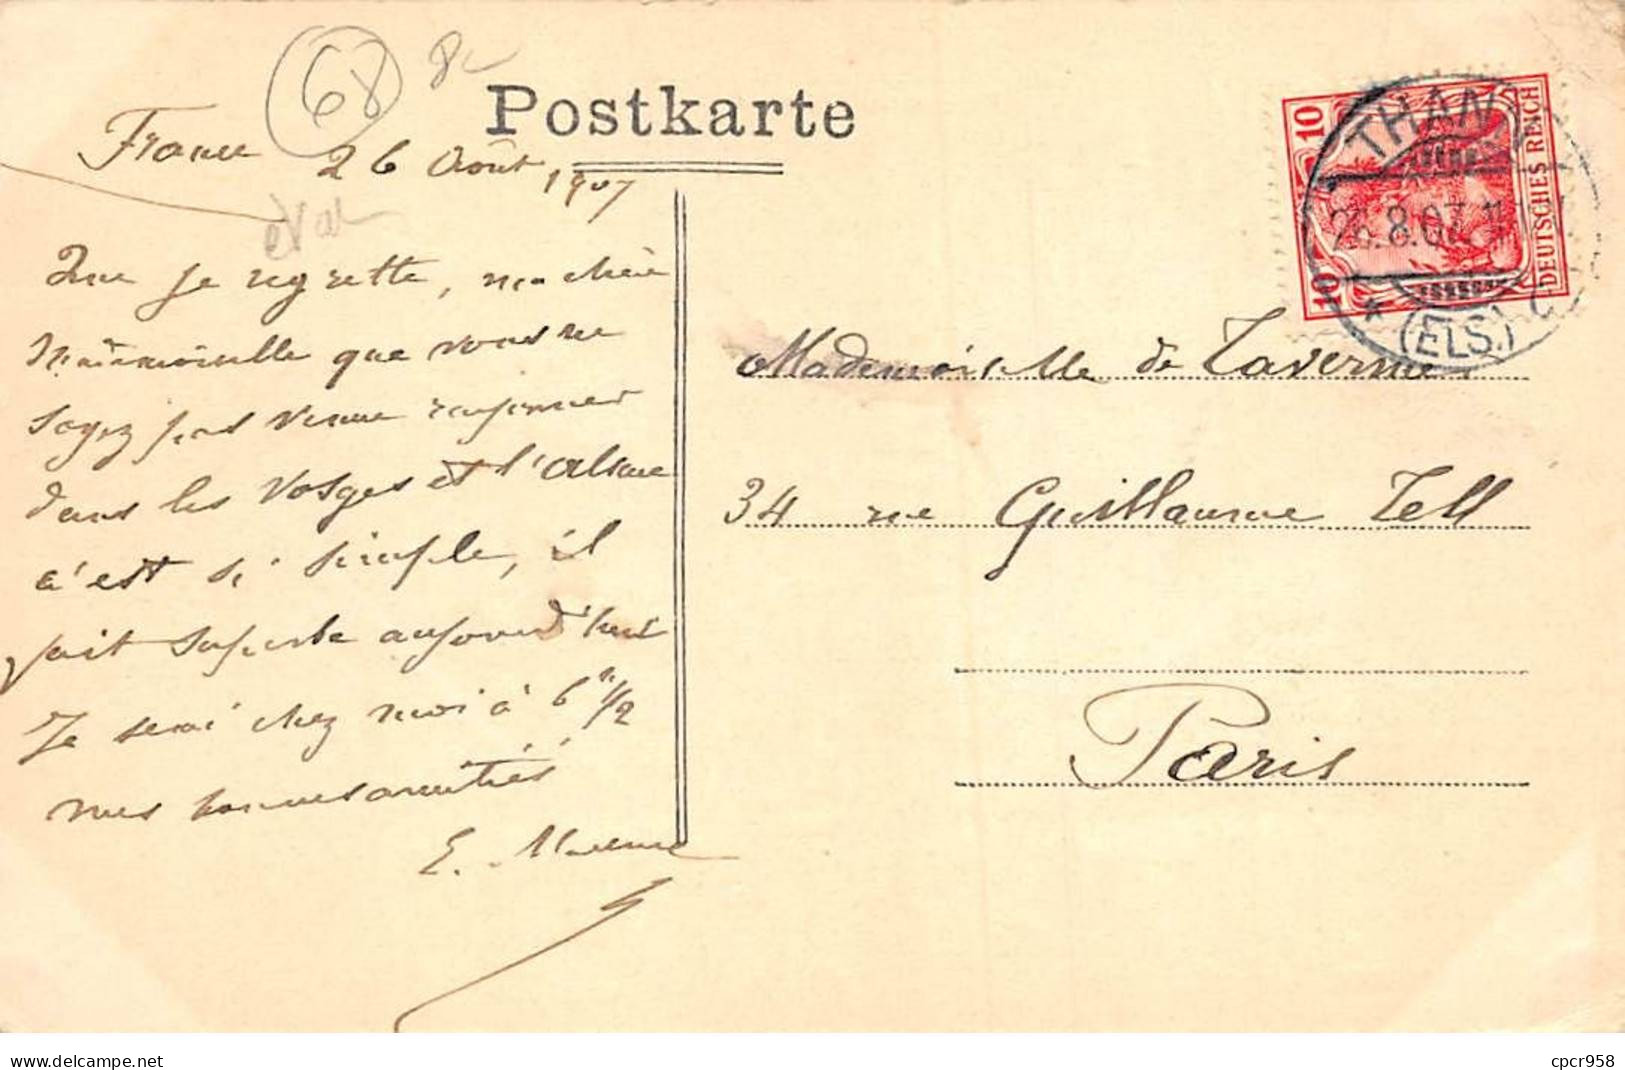 68
Postkarte
26 Août 1907
Que je regrette, ma chère
que vous ne
soyez pas venue
dans les Vosges et l'Alsace
c'est si simple, il
fait superbe aujourd'hui
Je serai chez moi à 6 h 1/2
mes bonnes amitiés
E.
10
10
DEUTSCHES REICH
THANN
26.8.07. 11
(ELS.)
Mademoiselle de Tavernier
34 rue Guillaume Tell
Paris
delcampe.net
cpcr958